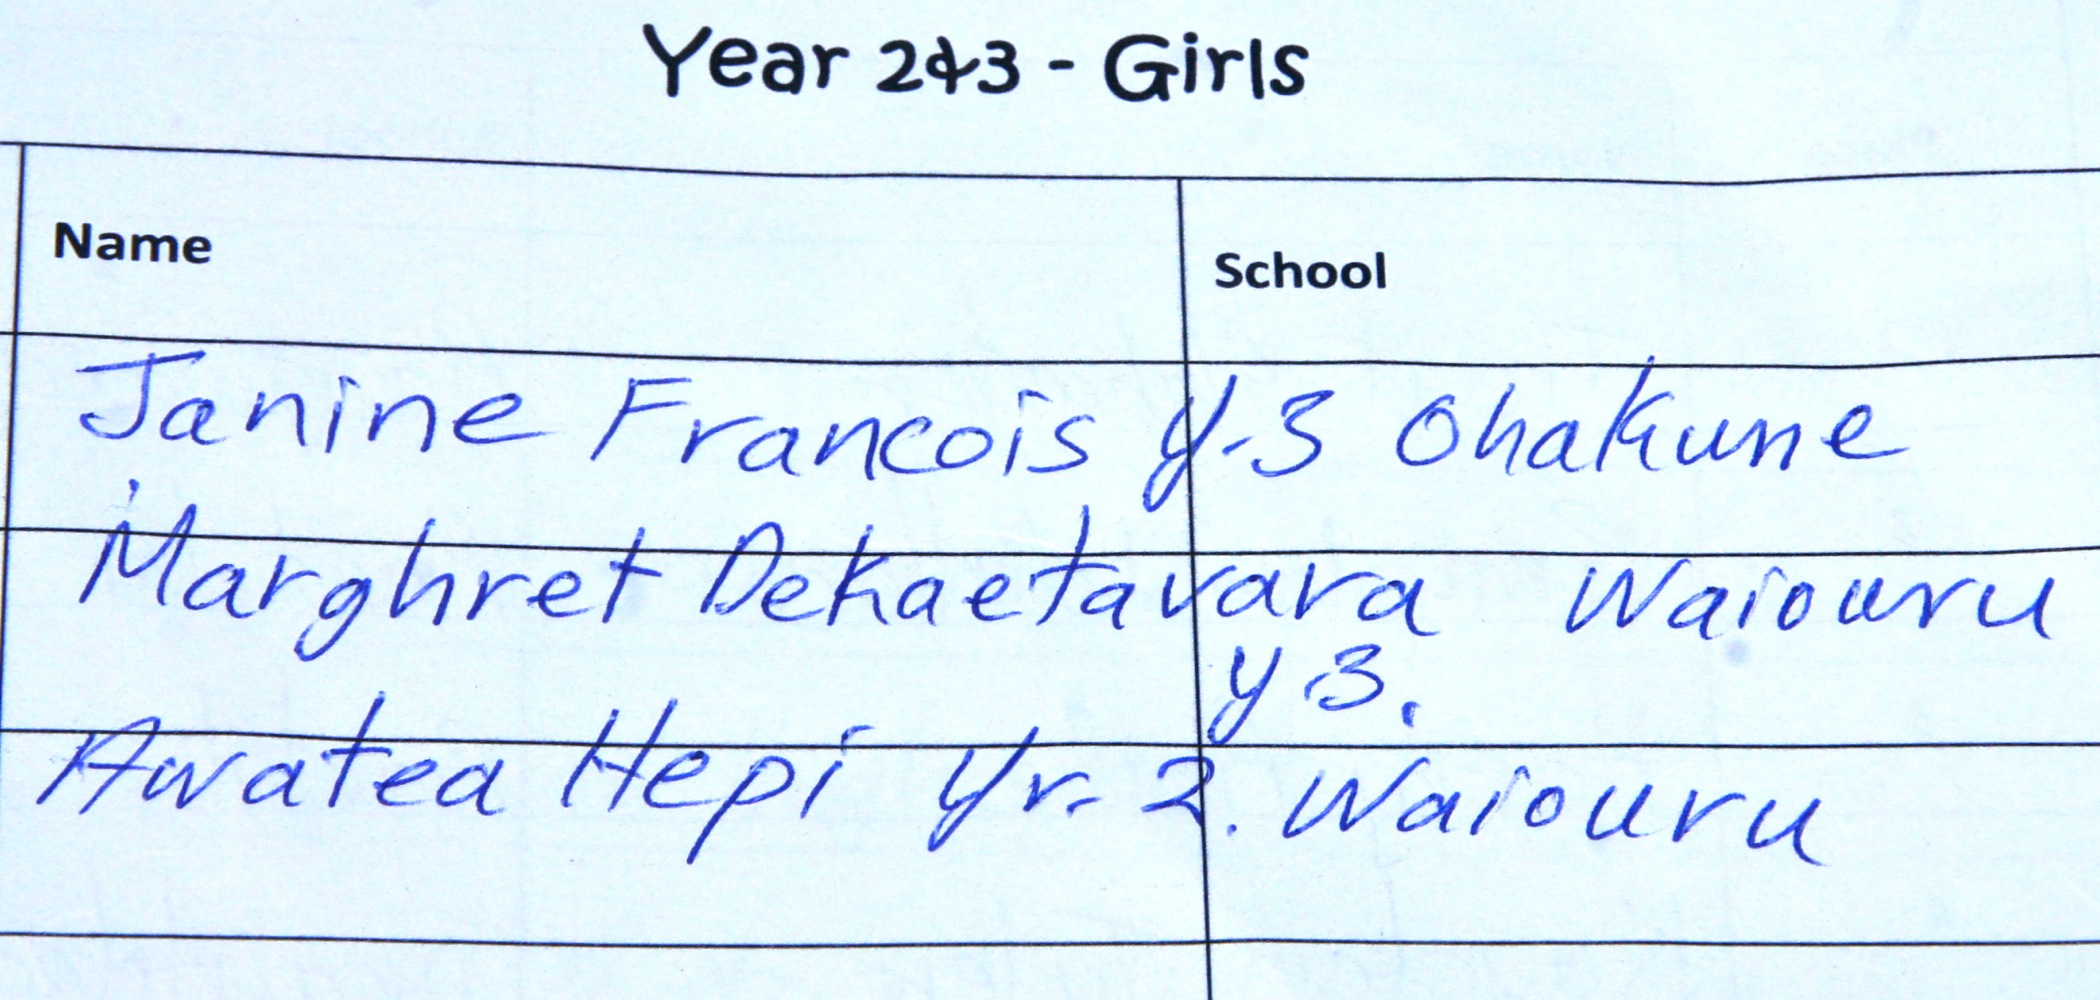 Year 2&3 - Girls
Name School
Janine Francois Y.3 Ohakune
Marghret Dekaetavara Waiouru
y 3.
Awatea Hepi Yr. 2. Waiouru